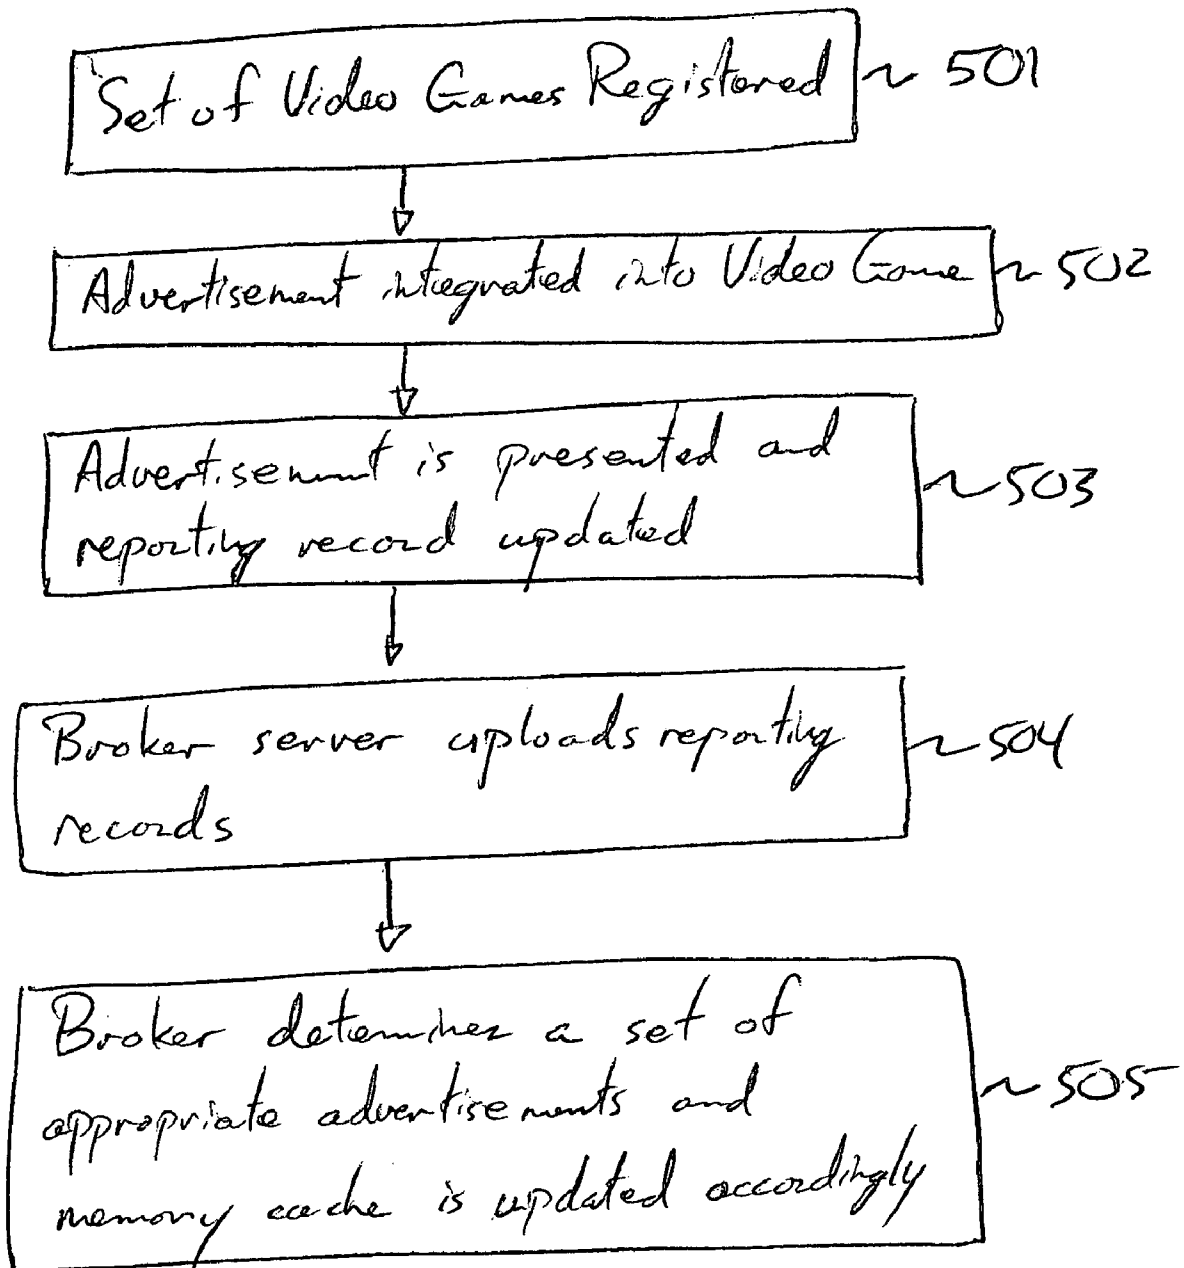 Set of Video Games Registered ~ 501
Advertisement integrated into Video Game ~ 502
Advertisement is presented and
reporting record updated
~ 503
Broker server uploads reporting
records
~ 504
Broker determines a set of
appropriate advertisements and
memory cache is updated accordingly
~ 505